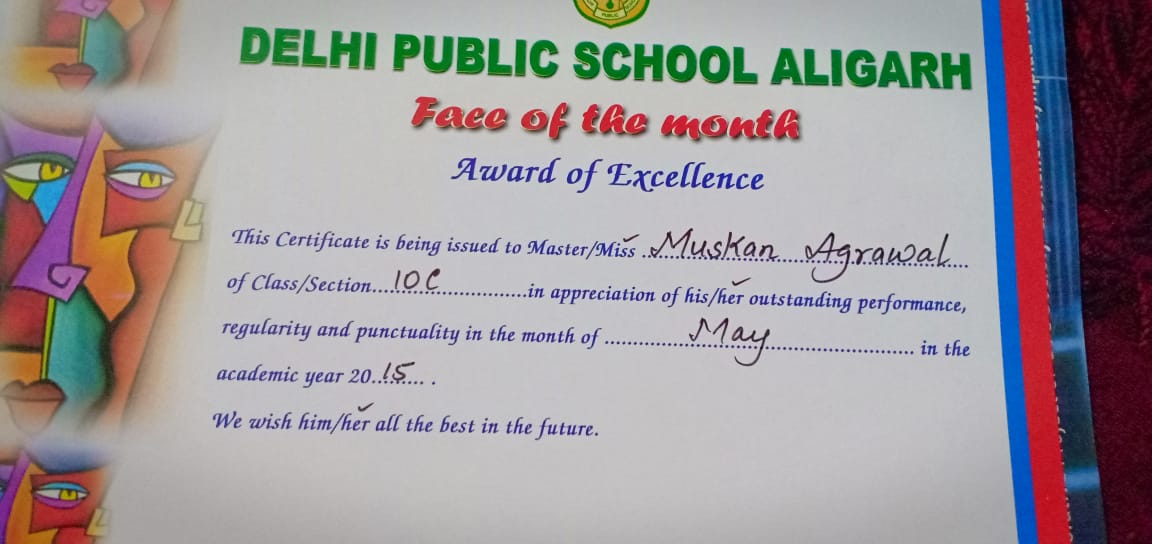 PUBLIC
DELHI PUBLIC SCHOOL ALIGARH
Face of the month
Award of Excellence
This Certificate is being issued to Master/Miss ..Muskan Agrawal...
of Class/Section....10C................in appreciation of his/her outstanding performance,
regularity and punctuality in the month of ..........May.......................... in the
academic year 20..15.... .
We wish him/her all the best in the future.